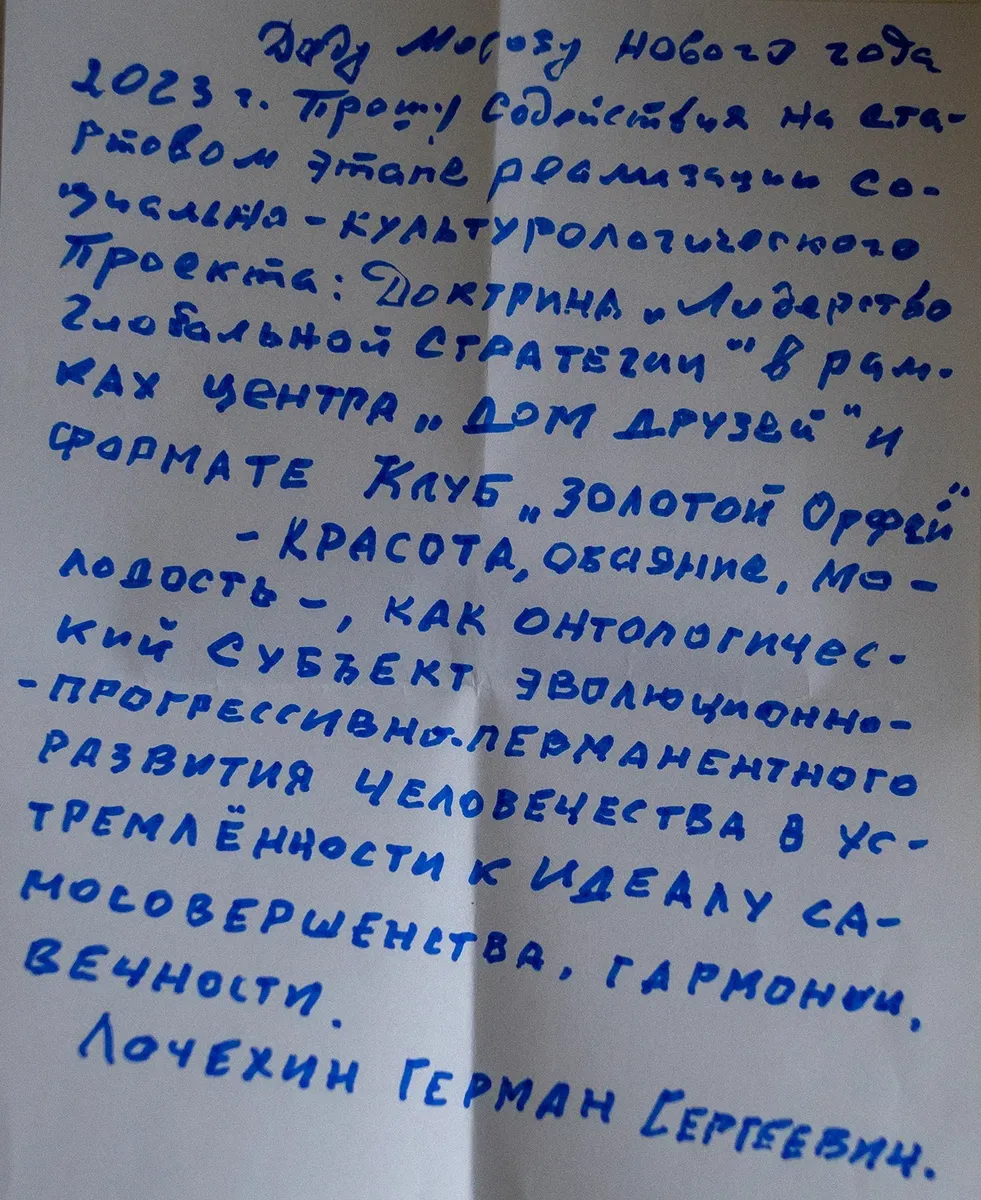 Деду Морозу Нового года
2023 г. Прошу Содействия на ста-
ртовом этапе реализации со-
циально-культурологического
Проекта: Доктрина „Лидерство
Глобальной СТРАТЕГИИ" в рам-
ках центра „ДОМ ДРУЗЕЙ" и
ФОРМАТЕ КЛУБ „ЗОЛОТОЙ ОРФЕЙ"
- КРАСОТА, ОБАЯНИЕ, МО-
ЛОДОСТЬ -, КАК ОНТОЛОГИЧЕС-
КИЙ СУБЪЕКТ ЭВОЛЮЦИОННО-
-ПРОГРЕССИВНО-ПЕРМАНЕНТНОГО
РАЗВИТИЯ ЧЕЛОВЕЧЕСТВА В УС-
ТРЕМЛЁННОСТИ К ИДЕАЛУ СА-
МОСОВЕРШЕНСТВА, ГАРМОНИИ,
ВЕЧНОСТИ.
ЛОЧЕХИН ГЕРМАН СЕРГЕЕВИЧ.